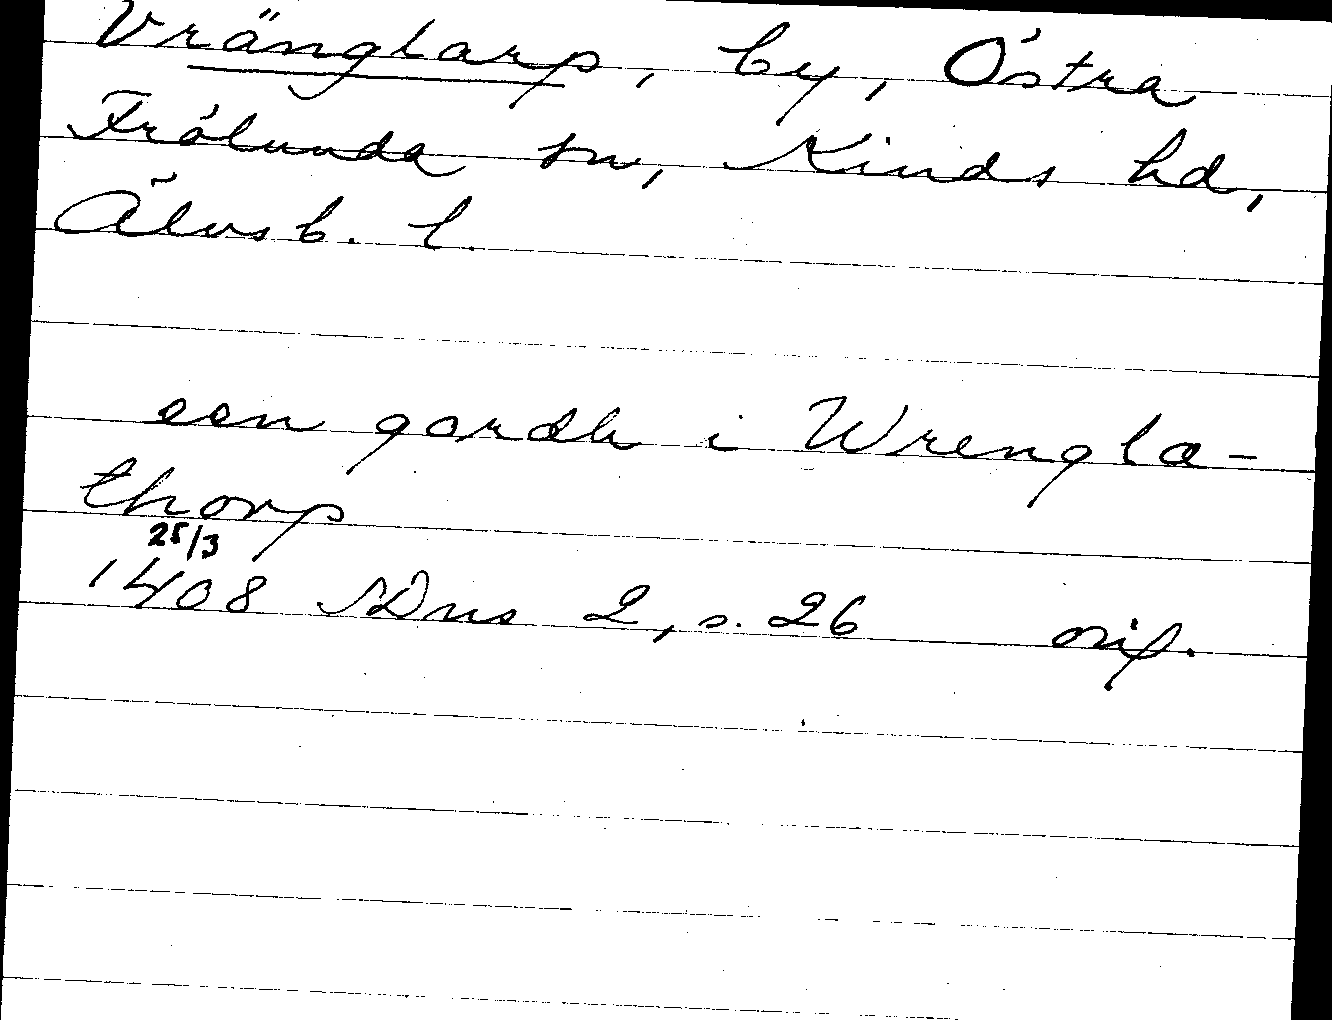 Vränglarp, by, Östra
Frölunda sn, Kinds hd,
Älvsb. l.
een gardh i Wrengla-
thorp
25/3
1408 SDns 2, s. 26 orig.